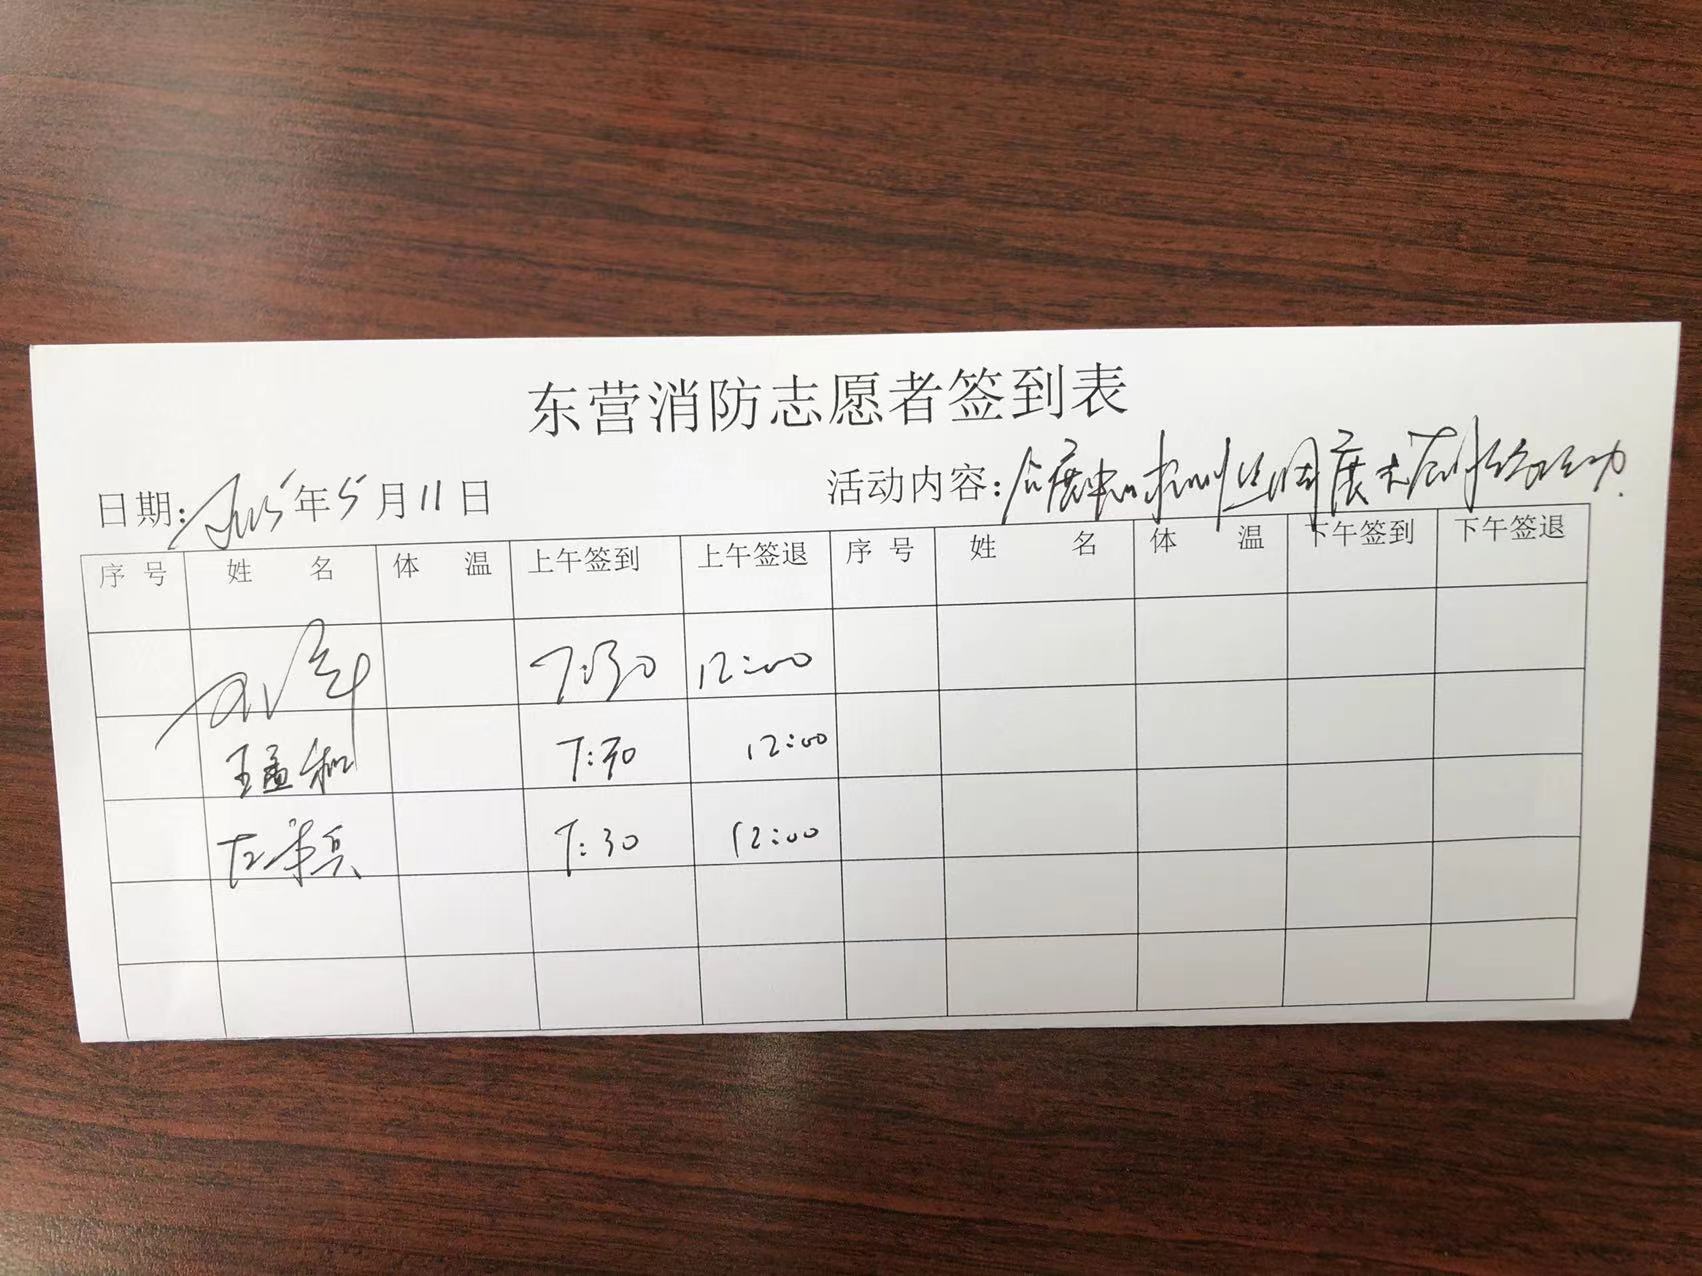 东营消防志愿者签到表
日期: 2025年5月11日 活动内容:
序号 姓名 体温 上午签到 上午签退 序号 姓名 体温 下午签到 下午签退
7:30 12:00
王孟和 7:30 12:00
7:30 12:00